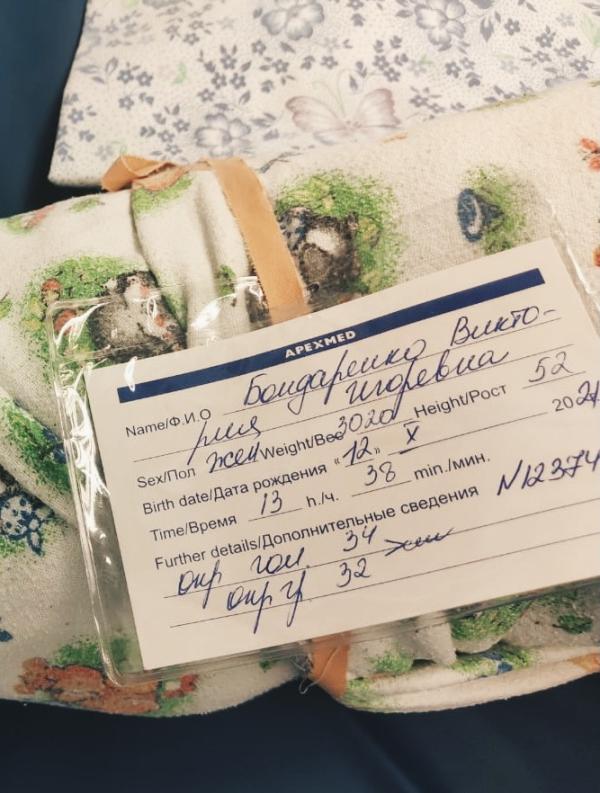 APEXMED
Name/Ф.И.О Бондаренко Викто-
рия Игоревна
Sex/Пол жен Weight/Вес 3020 Height/Рост 52
Birth date/Дата рождения «12» X 2021
Time/Время 13 h./ч. 38 min./мин.
Further details/Дополнительные сведения N12374
окр гол. 34
окр гр 32